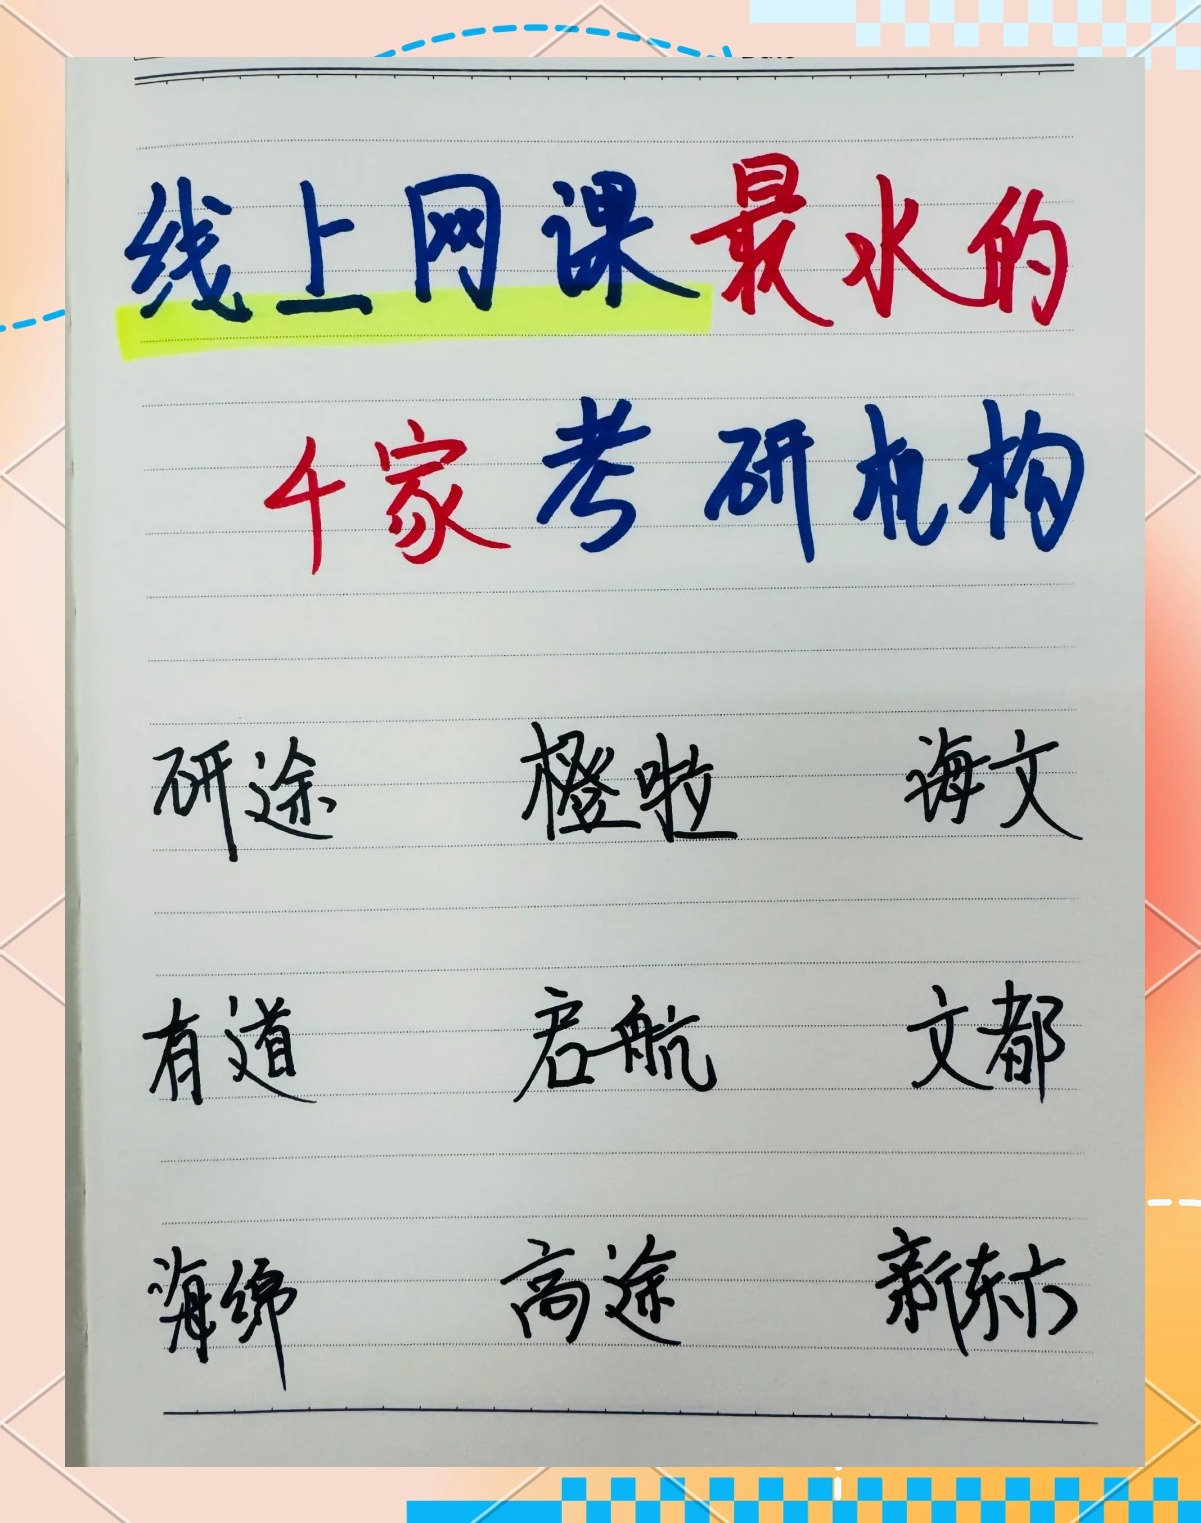 线上网课最水的
千家考研机构
研途 橙啦 海文
有道 启航 文都
海绵 高途 新东方